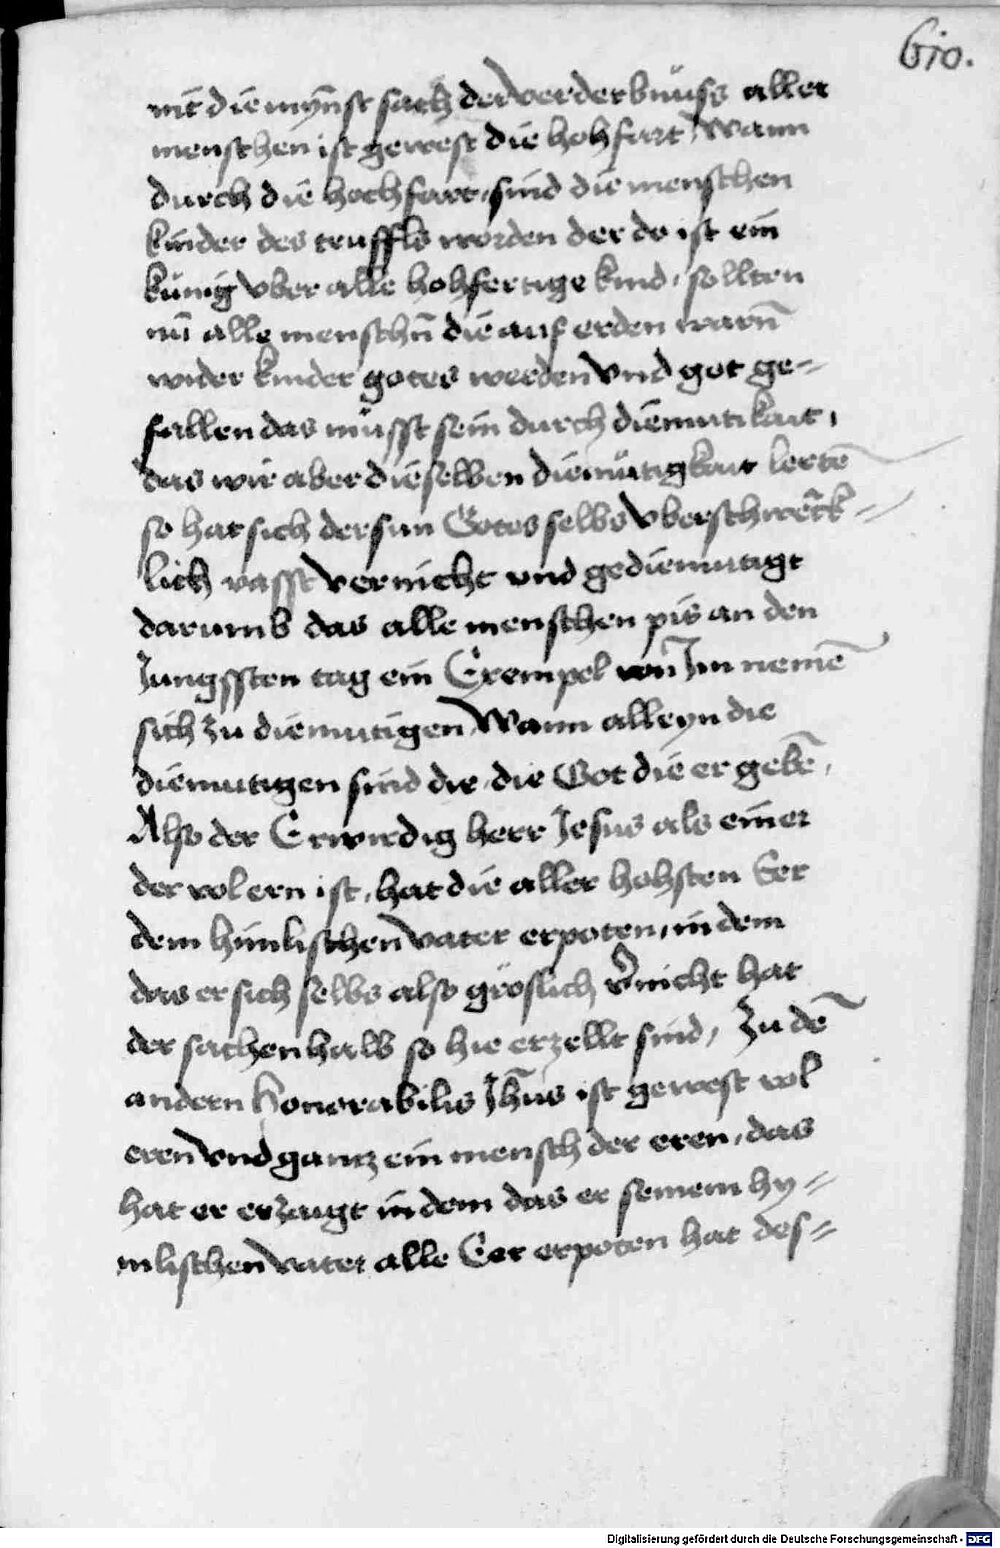 610.
nit die mynst sach der verderbnuss aller
menschen ist gewest die hohfart, Wann
durch die hochfart, sind die menschen
kinder des teuffls worden der do ist ein
künig vber alle hohfertige kind, sollten
nū alle menschn̄ die auf erden warn̄
wider kinder gotes werden vnd got ge-
fallen das müsst sein durch diemutikait,
das wir aber dieselben diemütigkait lertē
so hat sich der sun Gotes selbs vberschwēck-
lich vasst vernicht vnd gediemutigt
darumb das alle menschen pis an den
Jungssten tag ein Exempel von Jm nemē
sich zu diemutigen Wann alleyn die
diemutigen sind die, die Got die er gebē,
Also der Erwirdig herr Jesus als einer
der vol ern ist, hat die aller hohsten Eer
dem himlischen vater erpoten, in dem
das er sich selbs also gröslich v̄nicht hat
der sachenhalb so hie erzellt sind, Zu dē
andern Honorabilis Jhūs ist gewest vol
eren vnd gantz ein mensch der eren, das
hat er erzaigt in dem das er seinem hy-
mlischen vater alle Eer erpoten hat des-
Digitalisierung gefördert durch die Deutsche Forschungsgemeinschaft - DFG